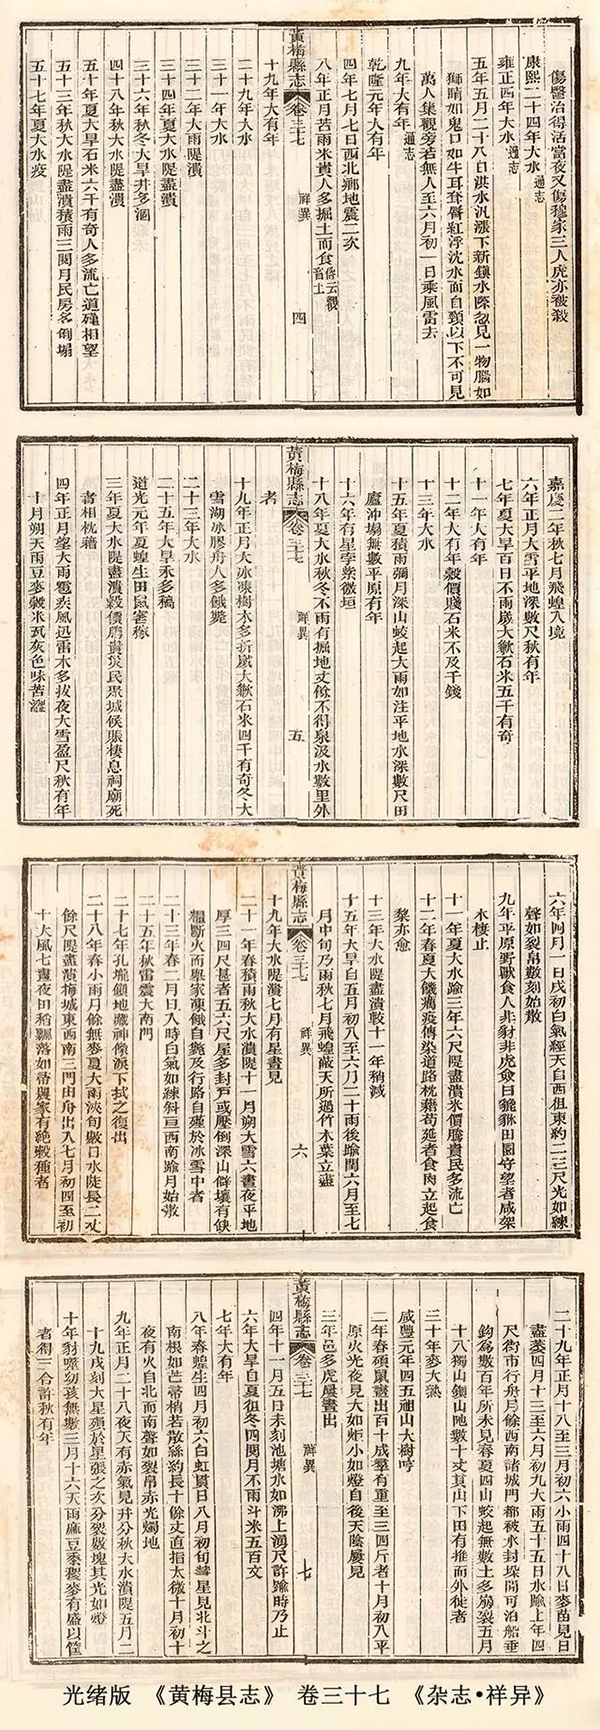 傷醫治得活當夜又傷穆家三人虎亦被殺
康熙二十四年大水通志
雍正四年大水通志
五年五月二十八日洪水汎漲下新鎮水際忽見一物腦如
獅睛如鬼口如牛耳耷脣紅浮沈水面自頸以下不可見
萬人集觀旁若無人至六月初一日乘風雷去
九年大有年通志
乾隆元年大有年
四年七月七日西北鄉地震二次
八年正月苦雨米貴人多掘土而食俗云觀音土
黃梅縣志 卷三十七 祥異 四
十九年大有年
二十九年大水
三十一年大水
三十二年大雨隄潰
三十四年夏大水隄盡潰
三十六年秋冬大旱井多涸
四十八年秋大水隄盡潰
五十年夏大旱石米六千有奇人多流亡道殣相望
五十三年秋大水隄盡潰積雨三閱月民房多倒塌
五十七年夏大水疫
嘉慶二年秋七月飛蝗入境
六年正月大雪平地深數尺秋有年
七年夏大旱百日不雨歲大歉石米五千有奇
十一年大有年
十二年大有年穀價賤石米不及千錢
十三年大水
十五年夏積雨彌月深山蛟起大雨如注平地水深數尺田
廬沖塌無數平原有年
十六年有星孛紫微垣
十八年夏大水秋冬不雨有掘地丈餘不得泉汲水數里外
黃梅縣志 卷三十七 祥異 五
者
十九年正月大冰凍樹木多折歲大歉石米四千有奇冬大
雪湖冰膠舟人多餓斃
二十三年大水
二十五年大旱禾多槁
道光元年夏蝗生田鼠害稼
三年夏大水隄盡潰穀價騰貴災民聚城候賑棲息祠廟死
者相枕藉
四年正月望大雨雹疾風迅雷木多拔夜大雪盈尺秋有年
十月朔天雨豆麥穀米瓦灰色味苦澀
六年四月一日戌初白氣經天自西徂東約二三尺光如練
聲如裂帛數刻始散
九年平原野獸食人非豺非虎僉曰㺄㹶田園守望者咸架
木棲止
十一年夏大水踰三年六尺隄盡潰米價騰貴民多流亡
十二年春夏大饑癘疫傳染道路枕藉苟延者食肉立起食
藜亦愈
十三年大水隄盡潰較十一年稍減
十五年大旱自五月初八至六月二十雨後踰閏六月至七
月中旬乃雨秋七月飛蝗蔽天所過竹木葉立盡
黃梅縣志 卷三十七 祥異 六
十九年大水隄潰七月有星晝見
二十一年春積雨秋大水潰隄十一月朔大雪六晝夜平地
厚三四尺甚者五六尺屋多封戸或壓倒深山僻壤有缺
糧斷火而舉家凍餓自斃及行路自殣於冰雪中者
二十三年春二月日入時白氣如練斜亘西南踰月始散
二十五年秋雷震大南門
二十七年孔壠鎮地藏神像淚下拭之復出
二十八年春小雨月餘無麥夏大雨浹旬數日水陡長二丈
餘尺隄盡潰梅城東西南三門由舟出入七月初四至初
十大風七晝夜田稻飄落如帚農家有絕穀種者
二十九年正月十八至三月初六小雨四十八日麥苗見日
盡萎四月十三至六月初九大雨五十五日水踰上年四
尺街市行舟月餘西南諸城門都被水封垛間可泊船垂
釣爲數百年所未見春夏四山蛟起無數土多崩裂五月
十八獨山鎮山陁數十丈其山下田有推而外徙者
三十年麥大熟
咸豐元年四五祖山大樹哼
二年春碩鼠晝出百十成羣有重至三四斤者十月初八平
原火光夜見大如炬小如燈自後天陰屢見
三年邑多虎屢晝出
黃梅縣志 卷三十七 祥異 七
四年十一月五日未刻池塘水如沸上湧尺許踰時乃止
六年大旱自夏徂冬四閱月不雨斗米五百文
七年大有年
八年春蝗生四月初六白虹貫日八月初旬彗星見北斗之
南根如芒帚梢若散絲約長十餘丈直指太微十月初十
夜有火自北而南聲如裂帛赤光燭地
九年正月二十八夜天有赤氣見井分秋大水潰隄五月二
十九戌刻大星殞於星張之次分裂數塊其光如燈
十年豺噬幼孩無數三月十六天雨麻豆黍稷麥有盛以筐
者得三合許秋有年
光绪版 《黄梅县志》 卷三十七 《杂志•祥异》